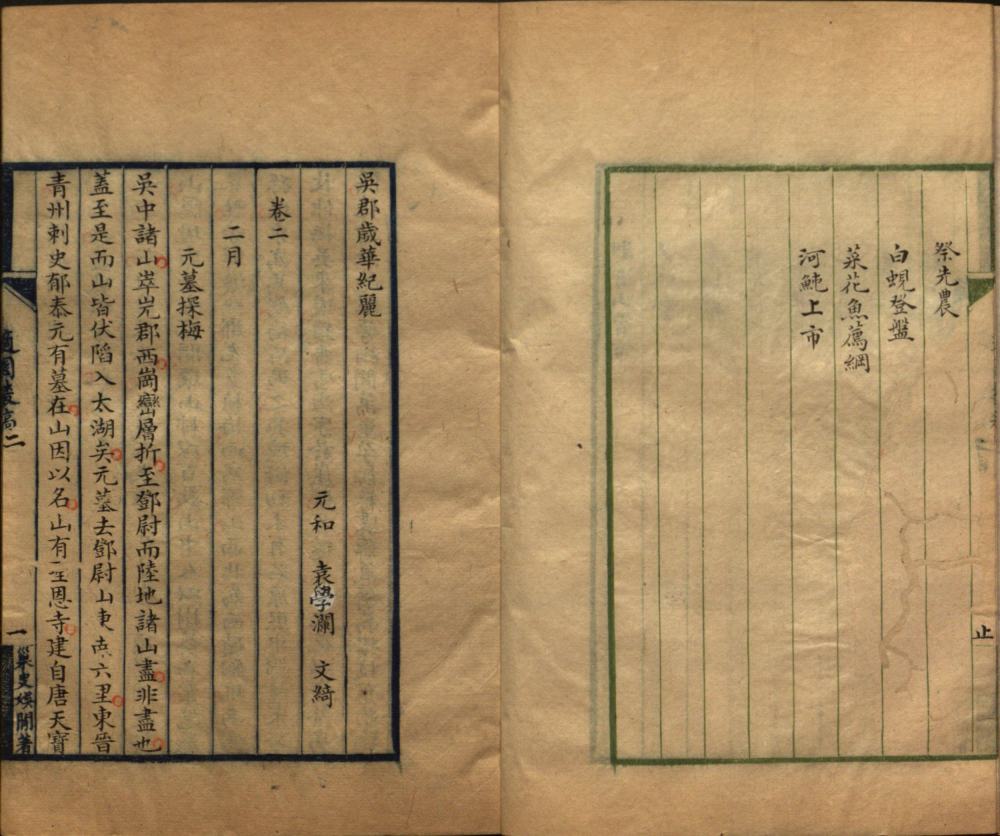 祭先農
白蜆登盤
菜花魚薦網
河魨上市
止
吳郡歲華紀麗
元和 袁學瀾 文綺
卷二
二月
元墓探梅
吳中諸山崒屼郡西崗巒層折至鄧尉而陸地諸山盡非盡也
蓋至是而山皆伏陷入太湖矣元墓去鄧尉山東南六里東晉
青州刺史郁泰元有墓在山因以名山有聖恩寺建自唐天寶
適園叢稿二
一